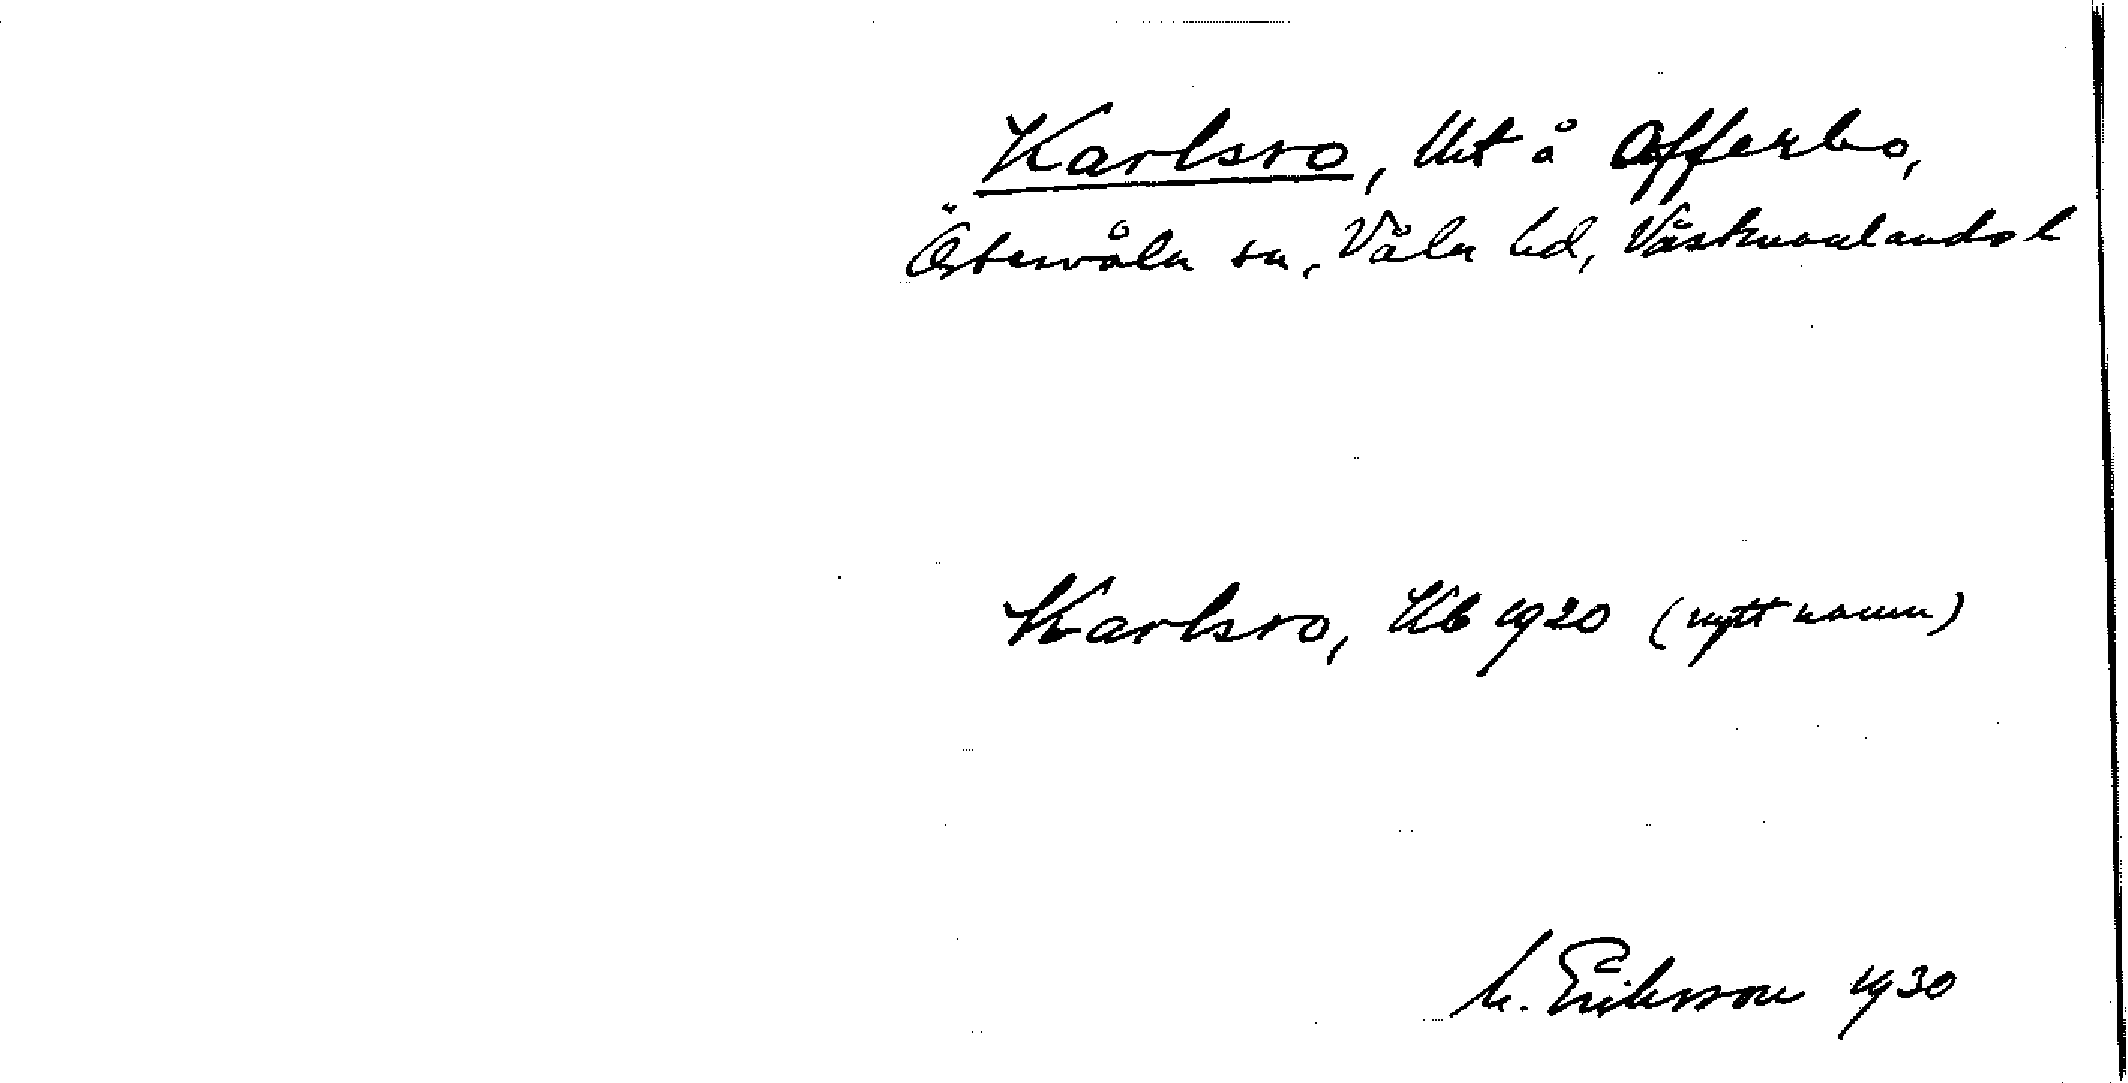 Karlsro, lht å Offerbo,
Östervåla sn, Våla hd, Västmanlands l
Karlsro, Kb 1920 (nytt namn)
M. Eriksson 1930